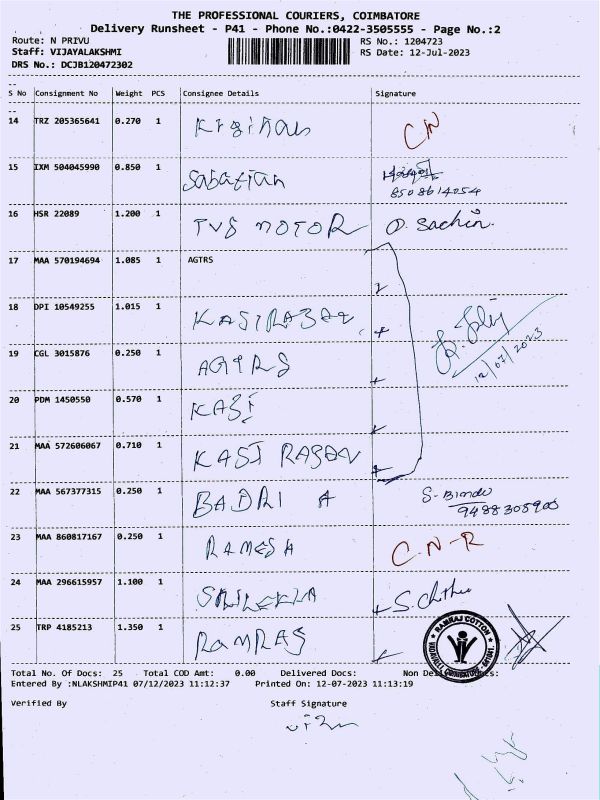 THE PROFESSIONAL COURIERS, COIMBATORE
Delivery Runsheet - P41 - Phone No.:0422-3505555 - Page No.:2
Route: N PRIVU
RS No.: 1204723
Staff: VIJAYALAKSHMI
RS Date: 12-Jul-2023
DRS No.: DCJB120472302
S No Consignment No Weight PCS Consignee Details Signature
14 TRZ 205365641 0.270 1 CN
15 IXM 504045990 0.850 1 Sabatian
8508614054
16 HSR 22089 1.200 1 TVS MOTOR D. Sachin.
17 MAA 570194694 1.085 1 AGTRS
18 DPI 10549255 1.015 1 KASIRAJAN
19 CGL 3015876 0.250 1 AGTRS
12/07/2023
20 PDM 1450550 0.570 1 KASI
21 MAA 572606067 0.710 1 KASI RAJAN
22 MAA 567377315 0.250 1 BADRI A S-Bindu
9488305900
23 MAA 860817167 0.250 1 RAMESH C.N-R
24 MAA 296615957 1.100 1 SRILEKHA
25 TRP 4185213 1.350 1 RAMRAJ
RAMRAJ COTTON
Total No. Of Docs: 25 Total COD Amt: 0.00 Delivered Docs: Non
Entered By :NLAKSHMIP41 07/12/2023 11:12:37 Printed On: 12-07-2023 11:13:19
Verified By Staff Signature